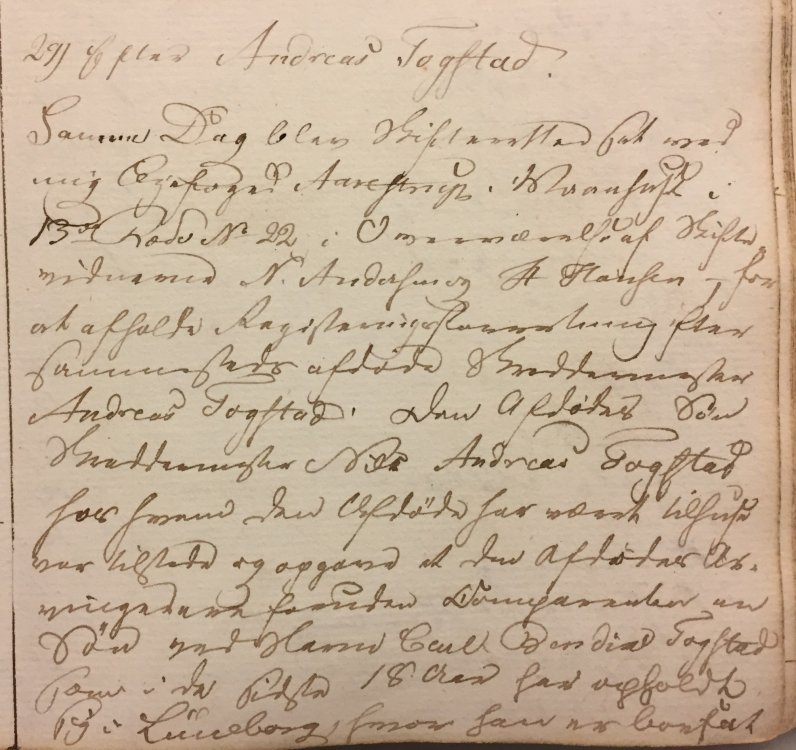 29) Efter Andreas Togstad.
Samme Dag blev Skifteretten sat ved
mig Byefoged Aarestrup i
13de Rode No 22 i Overværelse af Skifte-
vidnerne N. Andersen og H Hansen, for
at afholde Registeringsforretning efter
sammesteds afdøde Skreddermester
Andreas Togstad. Den Afdødes Søn
Skreddermester Niels Andreas Togstad
hos hvem den Afdøde har været tilhuse
var tilstede og opgave at den Afdødes Ar-
vinger ere foruden Comparenten en
Søn ved Navn Carl Togstad
som i de sidste 18 Aar har opholdt
sig i Lüneborg, hvor han er bosat